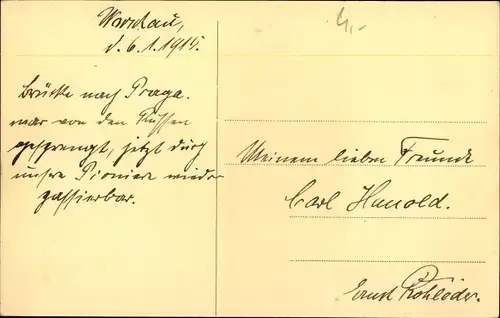 Warschau,
d. 6. 1. 1915.
Brücke nach Praga.
war von den Russen
gesprengt, jetzt durch
unsere Pioniere wieder
passierbar.
4,-
Meinem lieben Freunde
Carl Hanold.
Ernst Rohloder.